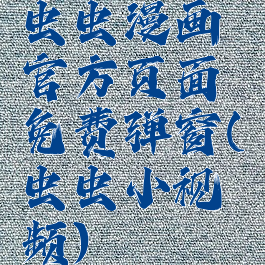 虫虫漫画
官方页面
免费弹窗(
虫虫小视
频)